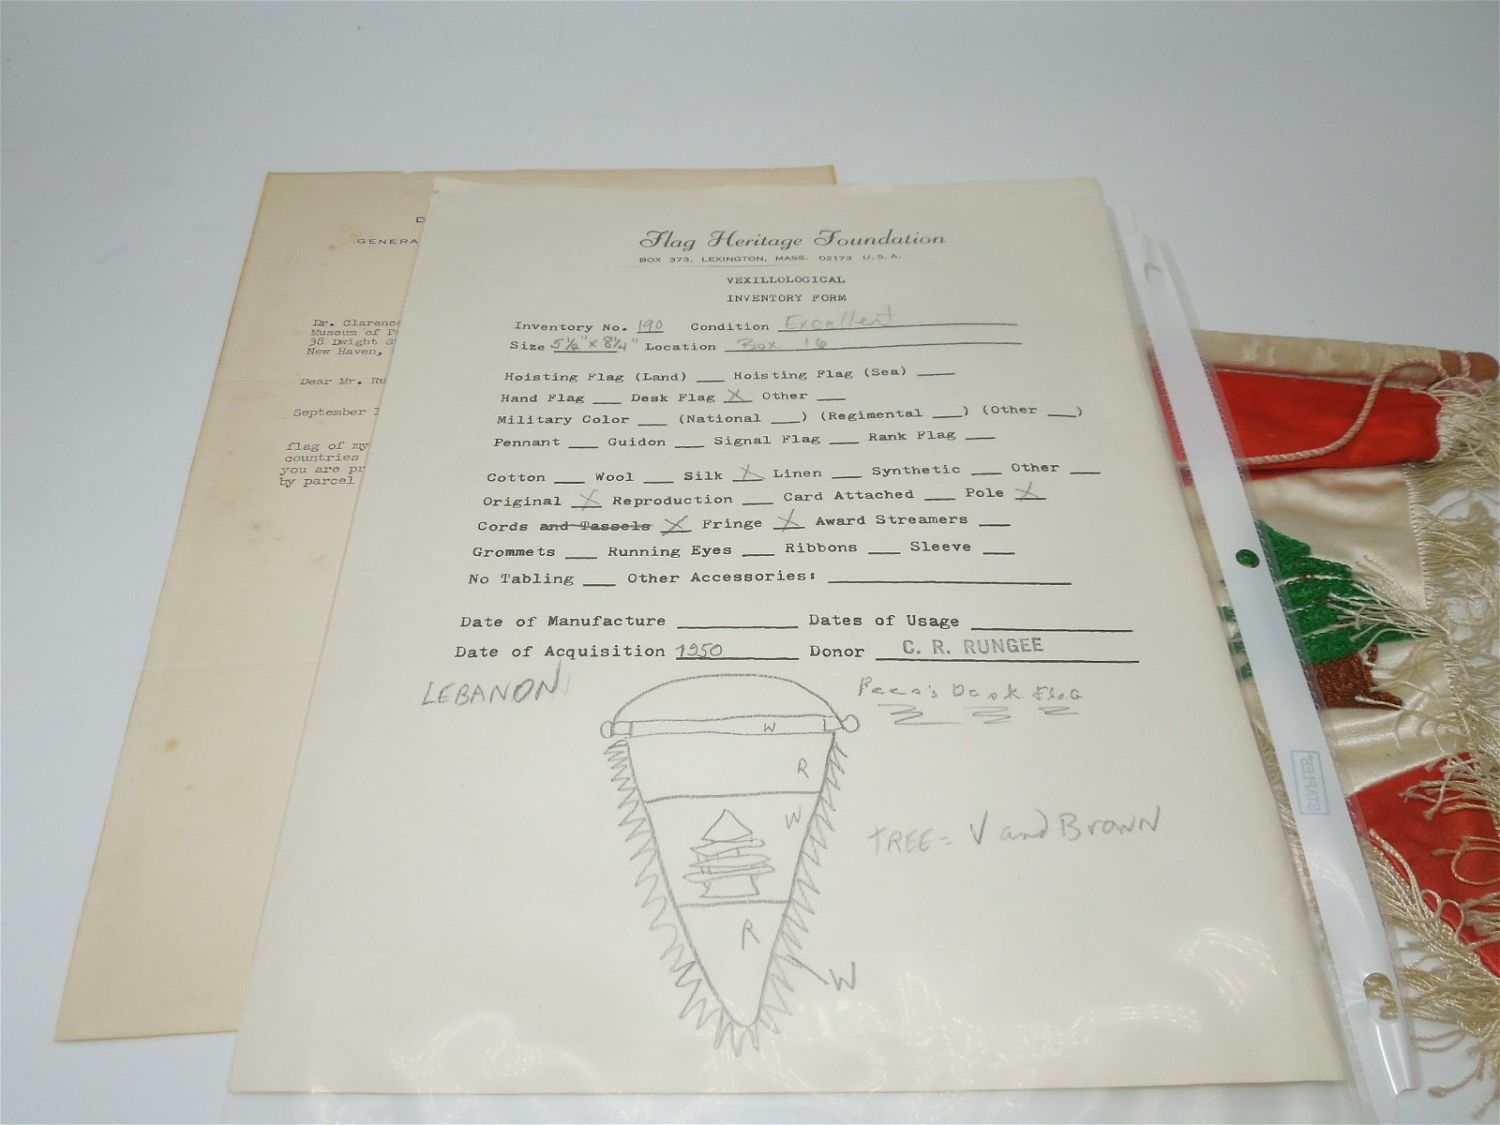 D
GENERA
Dr. Clarence
Museum of P
38 Dwight S
New Haven,
Dear Mr. Ru
September 1
flag of my
countries
you are pr
by parcel
Flag Heritage Foundation
BOX 373, LEXINGTON, MASS. 02173 U.S.A.
VEXILLOLOGICAL
INVENTORY FORM
Inventory No. 190 Condition Excellent
Size 5½" x 8¼" Location Box 16
Hoisting Flag (Land) ___ Hoisting Flag (Sea) ___
Hand Flag ___ Desk Flag X Other ___
Military Color ___ (National ___) (Regimental ___) (Other ___)
Pennant ___ Guidon ___ Signal Flag ___ Rank Flag ___
Cotton ___ Wool ___ Silk X Linen ___ Synthetic ___ Other ___
Original X Reproduction ___ Card Attached ___ Pole X
Cords and Tassels X Fringe X Award Streamers ___
Grommets ___ Running Eyes ___ Ribbons ___ Sleeve ___
No Tabling ___ Other Accessories: ___
Date of Manufacture ___ Dates of Usage ___
Date of Acquisition 1950 Donor C. R. RUNGEE
LEBANON
Desk Flag
W
R
W
TREE = V and BROWN
R
W
STAPLES